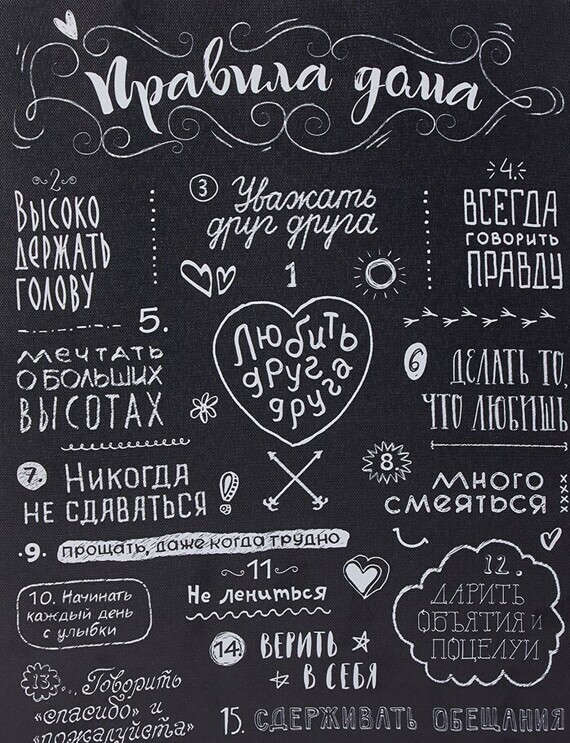 Правила дома
2
ВЫСОКО
ДЕРЖАТЬ
ГОЛОВУ
3
Уважать
друг друга
4.
ВСЕГДА
ГОВОРИТЬ
ПРАВДУ
1
Любить
друг
друга
5.
мечтать
о больших
высотах
6
ДЕЛАТЬ ТО,
ЧТО ЛЮБИШЬ
7.
Никогда
не сдаваться!
8.
много
смеяться
xxxx
9. прощать, даже когда трудно
10. Начинать
каждый день
с улыбки
11
Не лениться
12.
ДАРИТЬ
ОБЪЯТИЯ И
ПОЦЕЛУИ
13... Говорить
«спасибо» и
«пожалуйста»
14 ВЕРИТЬ
В СЕБЯ
15. СДЕРЖИВАТЬ ОБЕЩАНИЯ